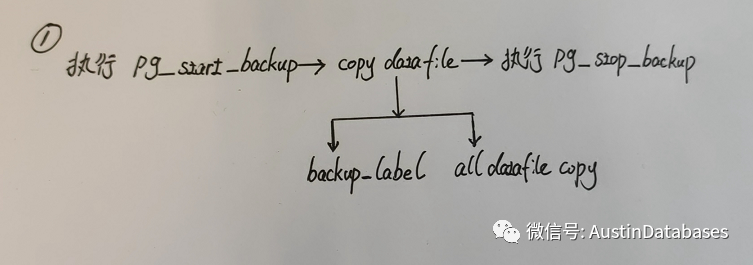 ①
执行 pg_start_backup→ copy datafile → 执行 pg_stop_backup
backup_label all datafile copy
微信号: AustinDatabases